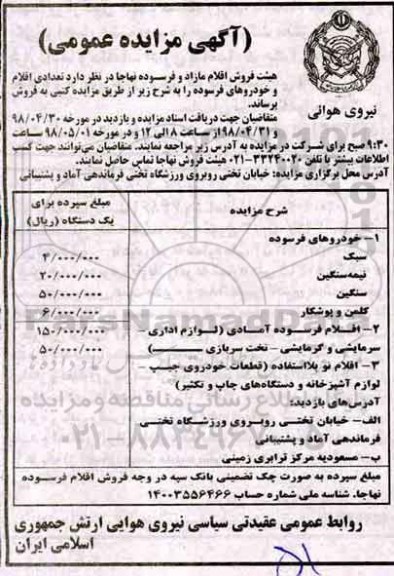 (آگهی مزایده عمومی)
نیروی هوائی
هیئت فروش اقلام مازاد و فرسوده نهاجا در نظر دارد تعدادی اقلام
و خودروهای فرسوده را به شرح زیر از طریق مزایده کتبی به فروش
برساند.
متقاضیان جهت دریافت اسناد مزایده و بازدید در مورخه ۹۸/۰۴/۳۰
و ۹۸/۰۴/۳۱ از ساعت ۸ الی ۱۲ و در مورخه ۹۸/۰۵/۰۱ ساعت
۹:۳۰ صبح برای شرکت در مزایده به آدرس زیر مراجعه نمایند. متقاضیان می‌توانند جهت کسب
اطلاعات بیشتر با تلفن ۳۳۲۴۰۰۲۰-۰۲۱ هیئت فروش نهاجا تماس حاصل نمایند.
آدرس محل برگزاری مزایده: خیابان تختی روبروی ورزشگاه تختی فرماندهی آماد و پشتیبانی
شرح مزایده
مبلغ سپرده برای
یک دستگاه (ریال)
۱- خودروهای فرسوده
سبک ۴/۰۰۰/۰۰۰
نیمه‌سنگین ۲۰/۰۰۰/۰۰۰
سنگین ۵۰/۰۰۰/۰۰۰
کلمن و پوشکار ۶/۰۰۰/۰۰۰
۲- اقلام فرسوده آمادی (لوازم اداری - ۱۵۰/۰۰۰/۰۰۰
سرمایشی و گرمایشی - تخت سربازی ۵۰/۰۰۰/۰۰۰
۳- اقلام نو بلااستفاده (قطعات خودروی جیپ -
لوازم آشپزخانه و دستگاههای چاپ و تکثیر)
آدرس‌های بازدید:
الف- خیابان تختی روبروی ورزشگاه تختی
فرماندهی آماد و پشتیبانی
ب- مسعودیه مرکز ترابری زمینی
مبلغ سپرده به صورت چک تضمینی بانک سپه در وجه فروش اقلام فرسوده
نهاجا. شناسه ملی شماره حساب ۱۴۰۰۳۵۵۶۴۶۶
روابط عمومی عقیدتی سیاسی نیروی هوایی ارتش جمهوری
اسلامی ایران